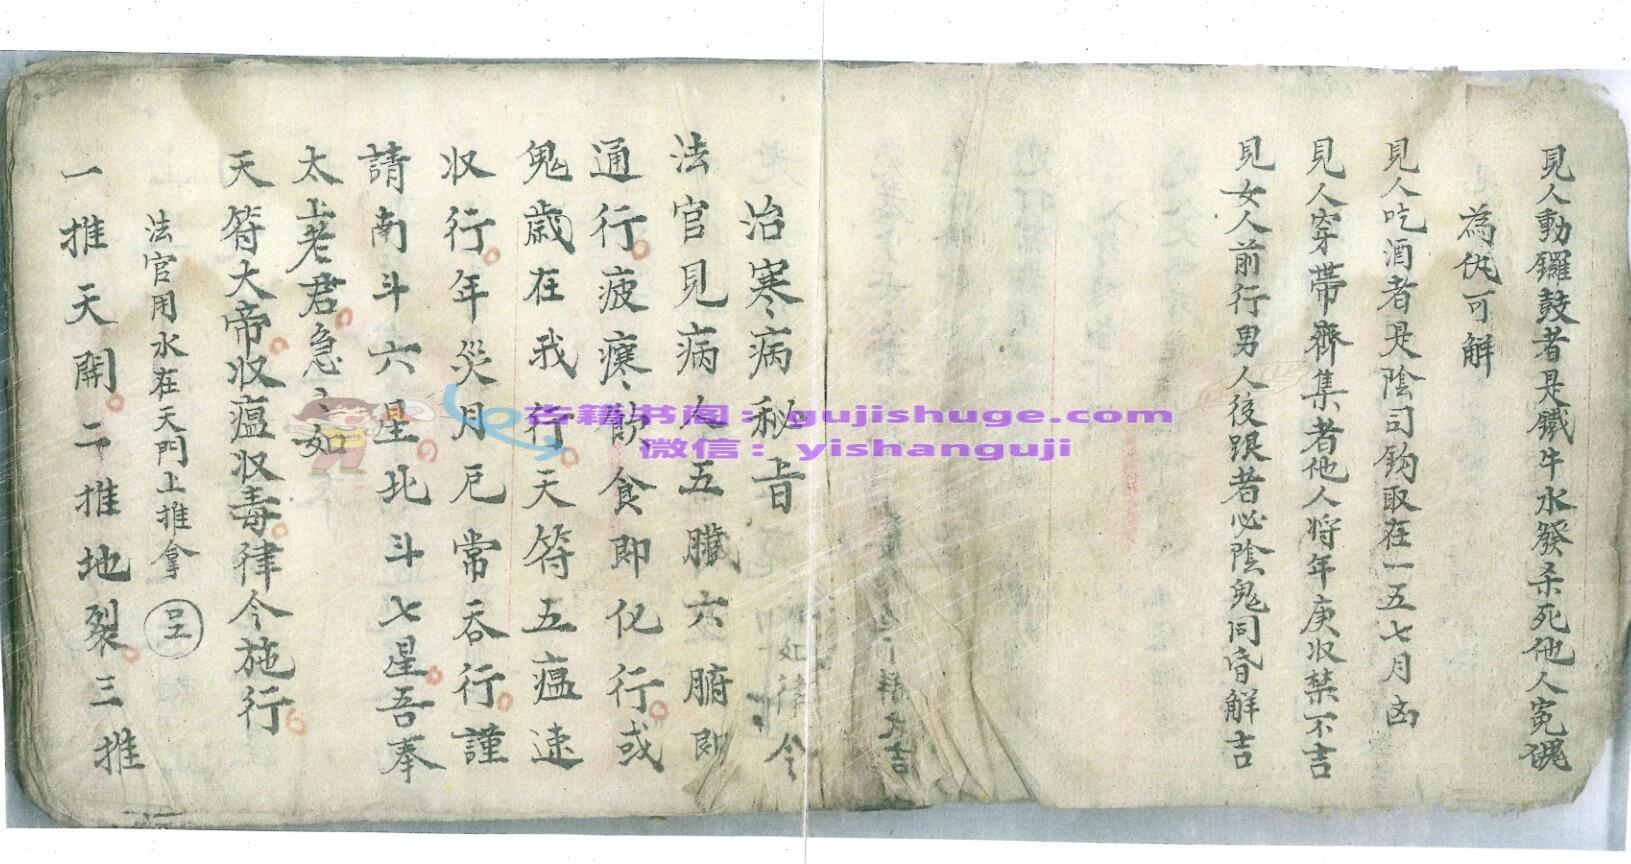 見人動鑼鼓者是鐵牛水發杀死他人冤魂
為仇可解
見人吃酒者是陰司鈎取在一五七月凶
見人穿帶齊集者他人将年庚收禁不吉
見女人前行男人後跟者必陰鬼同昏解吉
治寒病秘旨
法官見病人五臟六腑即
通行疲寒飲食即化行或
鬼歲在我行天符五瘟速
收行年災月厄常吞行謹
請南斗六星北斗七星吾奉
太上老君急々如
天符大帝收瘟收毒律令施行
法官用水在天門上推拿
一推天開二推地裂三推
如律令
古籍书阁：gujishuge.com
微信：yishanguji